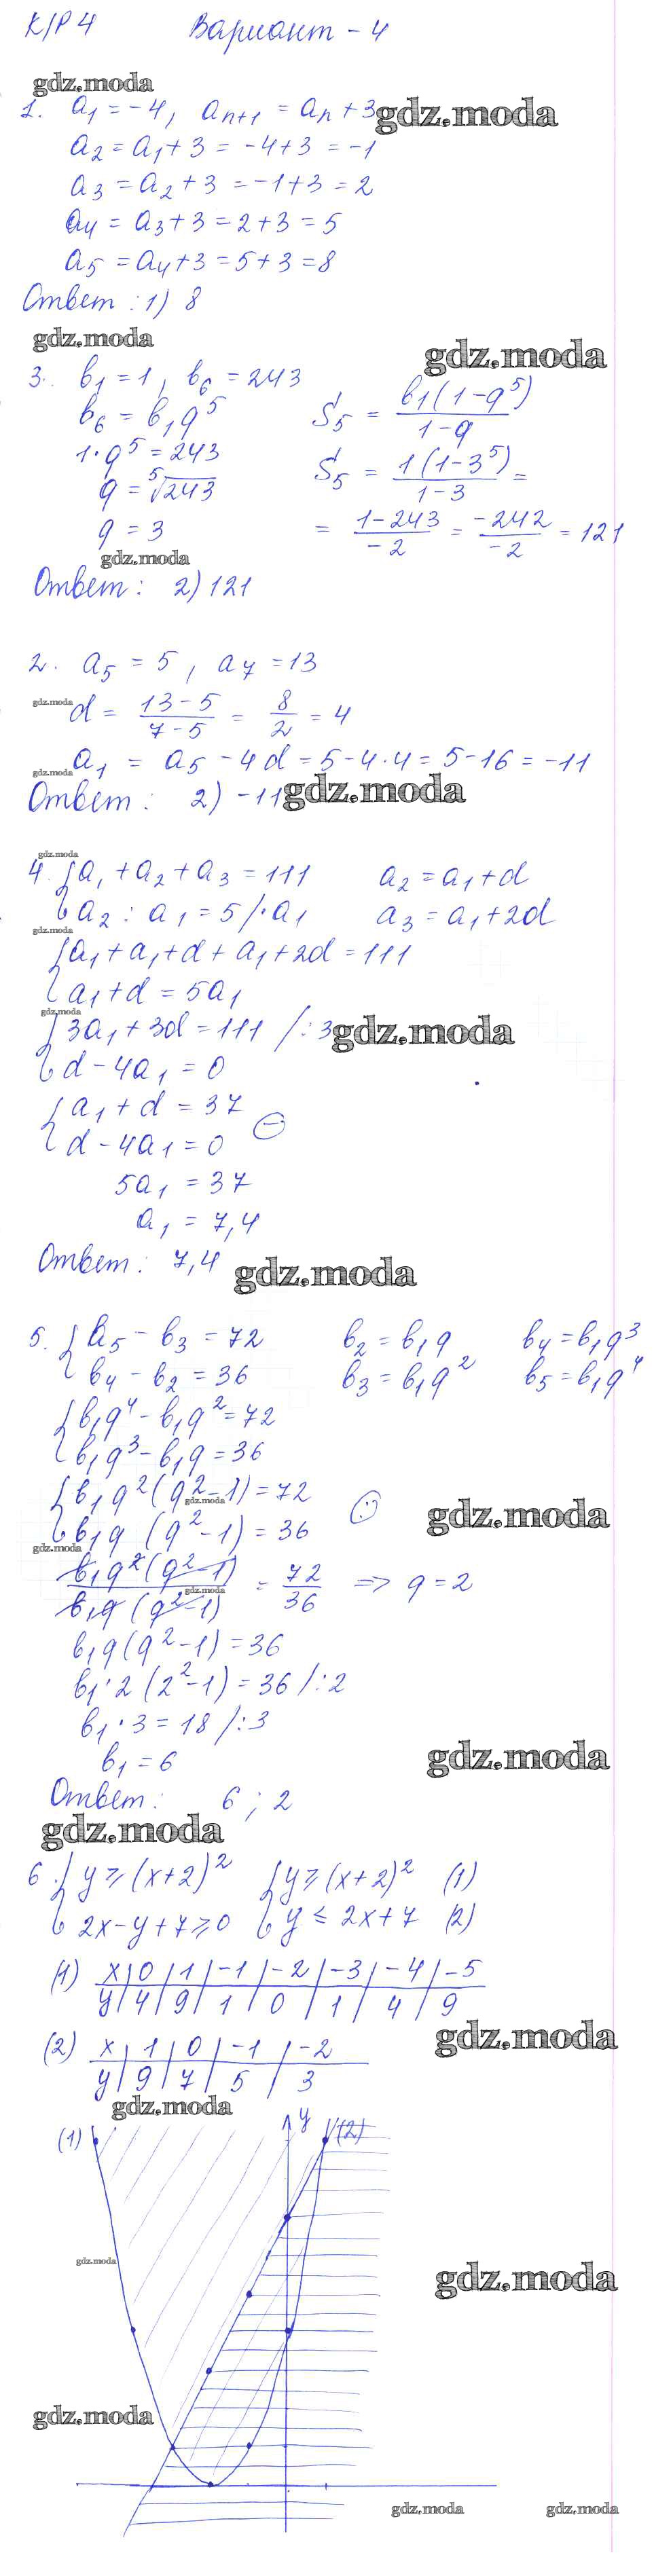 К/Р 4 Вариант - 4
gdz.moda
1. a₁ = -4, aₙ₊₁ = aₙ + 3 gdz.moda
a₂ = a₁ + 3 = -4 + 3 = -1
a₃ = a₂ + 3 = -1 + 3 = 2
a₄ = a₃ + 3 = 2 + 3 = 5
a₅ = a₄ + 3 = 5 + 3 = 8
Ответ: 1) 8
gdz.moda gdz.moda
3. b₁ = 1, b₆ = 243
b₆ = b₁q⁵ S₅ = b₁(1-q⁵) / 1-q
1·q⁵ = 243 S₅ = 1(1-3⁵) / 1-3 =
q = ⁵√243
q = 3 = 1-243 / -2 = -242 / -2 = 121
gdz.moda
Ответ: 2) 121
2. a₅ = 5, a₇ = 13
gdz.moda d = 13-5 / 7-5 = 8/2 = 4
gdz.moda a₁ = a₅ - 4d = 5 - 4·4 = 5 - 16 = -11
Ответ: 2) -11 gdz.moda
gdz.moda
4. { a₁ + a₂ + a₃ = 111 a₂ = a₁ + d
a₂ : a₁ = 5 /·a₁ a₃ = a₁ + 2d
gdz.moda
{ a₁ + a₁ + d + a₁ + 2d = 111
a₁ + d = 5a₁
gdz.moda
{ 3a₁ + 3d = 111 /:3 gdz.moda
d - 4a₁ = 0
{ a₁ + d = 37
d - 4a₁ = 0 ⊖
5a₁ = 37
a₁ = 7,4
Ответ: 7,4 gdz.moda
5. { b₅ - b₃ = 72 b₂ = b₁q b₄ = b₁q³
b₄ - b₂ = 36 b₃ = b₁q² b₅ = b₁q⁴
{ b₁q⁴ - b₁q² = 72
b₁q³ - b₁q = 36
{ b₁q²(q² - 1) = 72
gdz.moda
b₁q (q² - 1) = 36 (:) gdz.moda
gdz.moda
b₁q²(q²-1) / b₁q(q²-1) = 72/36 => q = 2
gdz.moda
b₁q(q² - 1) = 36
b₁·2(2² - 1) = 36 /:2
b₁·3 = 18 /:3
b₁ = 6 gdz.moda
Ответ: 6; 2
gdz.moda
6. { y ≥ (x+2)² { y ≥ (x+2)² (1)
2x - y + 7 ≥ 0 y ≤ 2x + 7 (2)
(1) x | 0 | 1 | -1 | -2 | -3 | -4 | -5
y | 4 | 9 | 1 | 0 | 1 | 4 | 9
gdz.moda
(2) x | 1 | 0 | -1 | -2
y | 9 | 7 | 5 | 3
gdz.moda
(1) y (2)
gdz.moda
gdz.moda
gdz.moda
gdz.moda gdz.moda